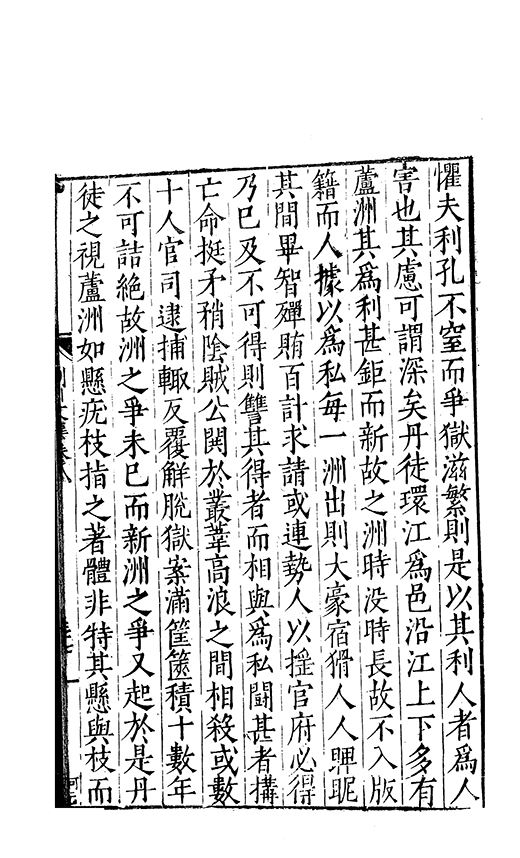 懼夫利孔不窒而爭獄滋繁則是以其利人者爲人
害也其慮可謂深矣丹徒環江爲邑沿江上下多有
蘆洲其爲利甚鉅而新故之洲時没時長故不入版
籍而人據以爲私每一洲出則大豪宿猾人人睥眤
其間畢智殫賄百計求請或連勢人以揺官府必得
乃已及不可得則讐其得者而相與爲私鬬甚者搆
亡命挺矛矟隂賊公鬨於叢葦高浪之間相殺或數
十人官司逮捕輙反覆觧脱獄案滿筐篋積十數年
不可詰絶故洲之爭未已而新洲之爭又起於是丹
徒之視蘆洲如懸疣枝指之著體非特其懸與枝而